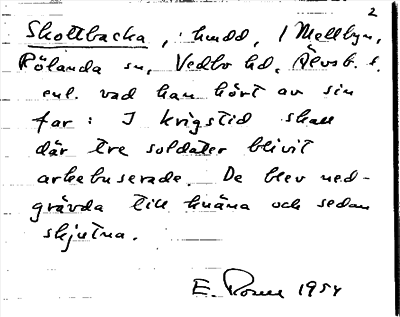 2
Skottbacka, i hudd, i Mellbyn,
Rölanda sn, Vedbo hd, Älvsb. l.
enl. vad han hört av sin
far: I krigstid skall
där tre soldater blivit
arkebuserade. De blev ned-
grävda till knäna och sedan
skjutna.
E. 1954